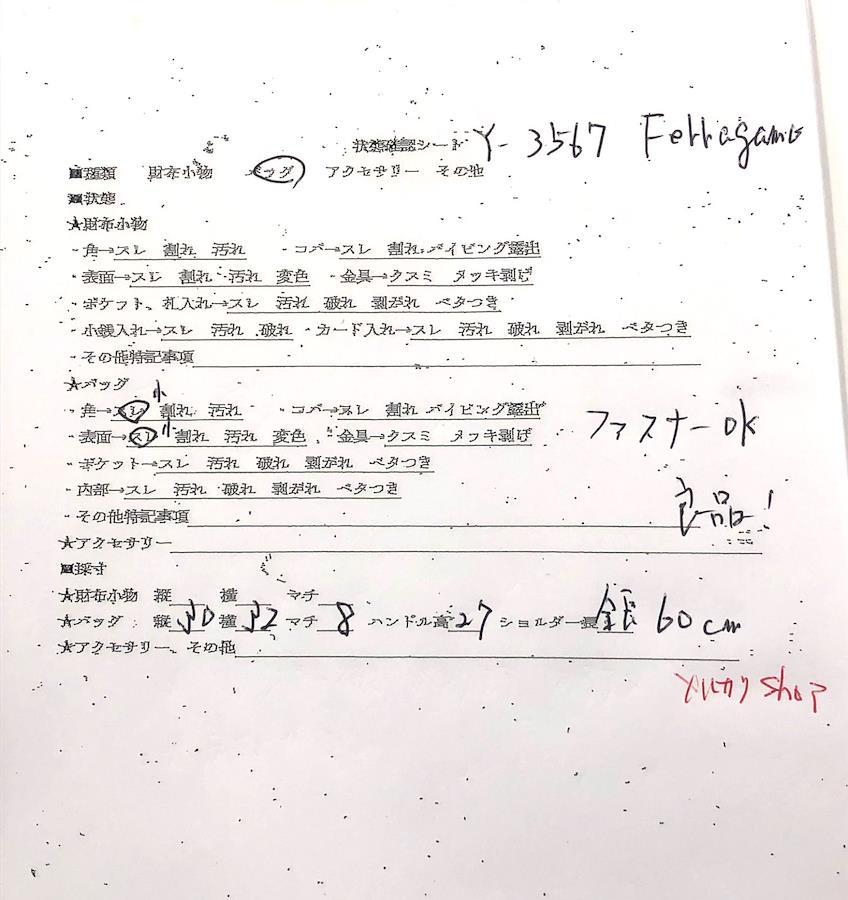 状態確認シート Y-3567 Ferragamo
■種類 財布小物 バッグ アクセサリー その他
■状態
★財布小物
・角→スレ 割れ 汚れ ・コバ→スレ 割れ パイピング露出
・表面→スレ 割れ 汚れ 変色 ・金具→クスミ メッキ剥げ
・ポケット、札入れ→スレ 汚れ 破れ 剥がれ ベタつき
・小銭入れ→スレ 汚れ 破れ ・カード入れ→スレ 汚れ 破れ 剥がれ ベタつき
・その他特記事項
★バッグ
小
・角→スレ 割れ 汚れ ・コバ→スレ 割れ パイピング露出
小
・表面→スレ 割れ 汚れ 変色 ・金具→クスミ メッキ剥げ ファスナーOK
・ポケット→スレ 汚れ 破れ 剥がれ ベタつき
・内部→スレ 汚れ 破れ 剥がれ ベタつき
・その他特記事項 良品!
★アクセサリー
■採寸
★財布小物 縦 横 マチ
★バッグ 縦 横 マチ 8 ハンドル高 27 ショルダー長 全長 60cm
★アクセサリー、その他
メルカリ shop